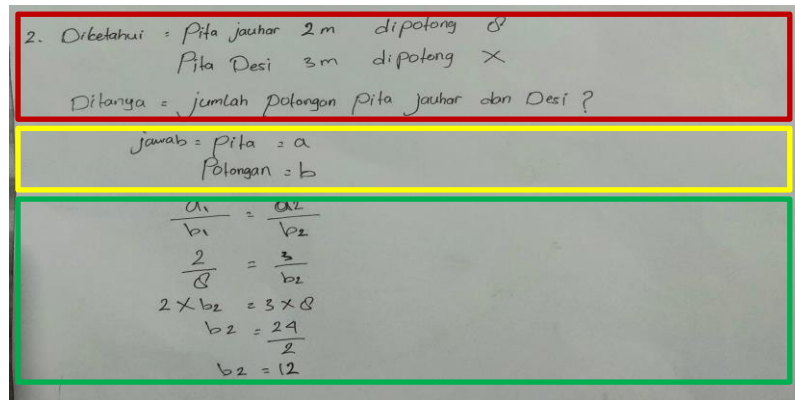 2. Diketahui = Pita jauhar 2 m dipotong 8
Pita Desi 3 m dipotong X
Ditanya = jumlah potongan pita jauhar dan Desi ?
jawab = pita = a
Potongan = b
a1/b1 = a2/b2
2/8 = 3/b2
2 X b2 = 3 X 8
b2 = 24/2
b2 = 12